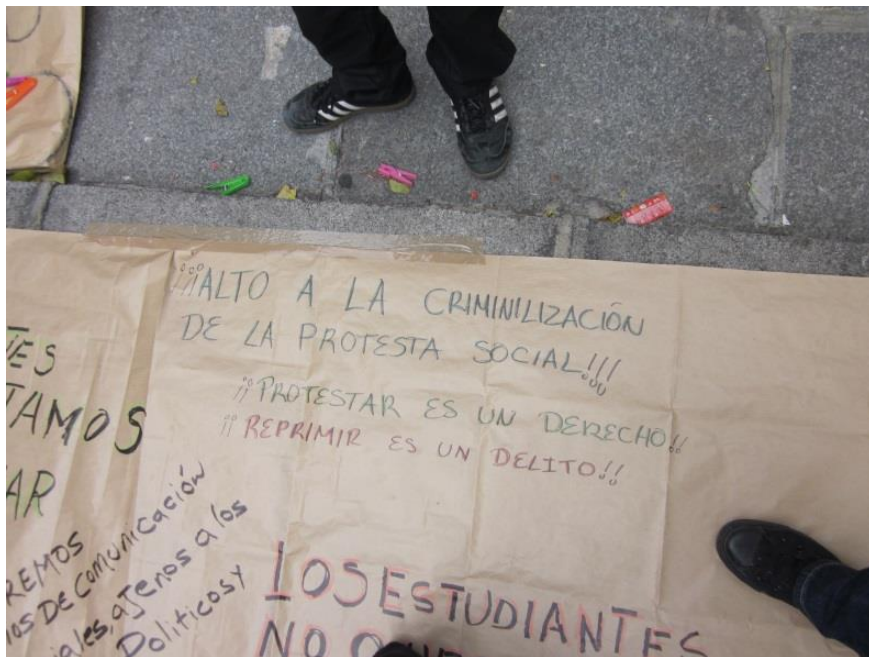 ¡¡¡ALTO A LA CRIMINILIZACIÓN
DE LA PROTESTA SOCIAL!!!
¡¡PROTESTAR ES UN DERECHO!!
¡¡REPRIMIR ES UN DELITO!!
TAMOS
AR
REMOS
DE COMUNICACIÓN
iales, ajenos a los
Politicos y
LOS ESTUDIANTES
NO